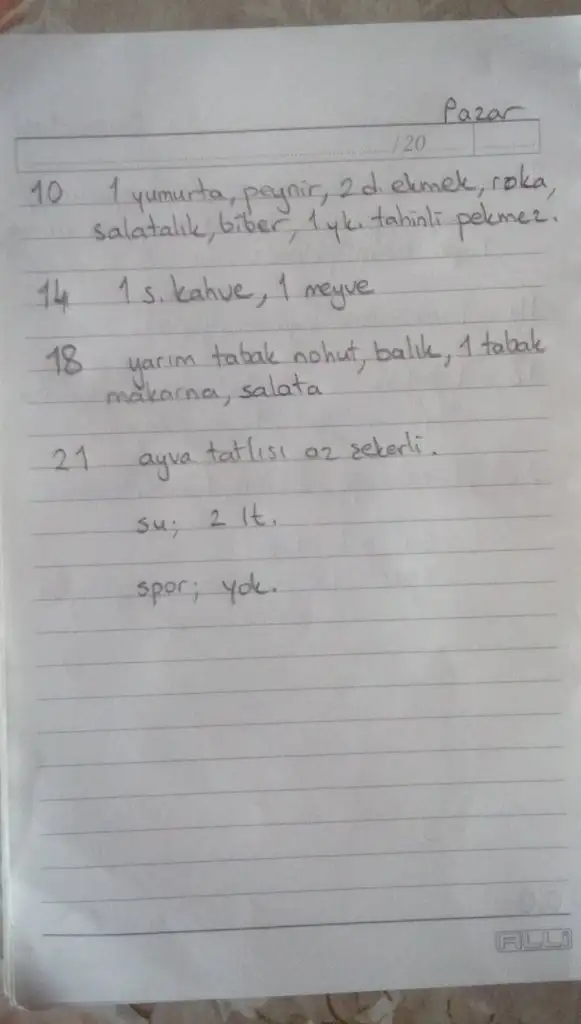 Pazar
/20
10 1 yumurta, peynir, 2 d. ekmek, roka,
salatalık, biber, 1 yk. tahinli pekmez.
14 1 s. kahve, 1 meyve
18 yarım tabak nohut, balık, 1 tabak
makarna, salata
21 ayva tatlısı az şekerli.
su; 2 lt.
spor; yok.
ALLi